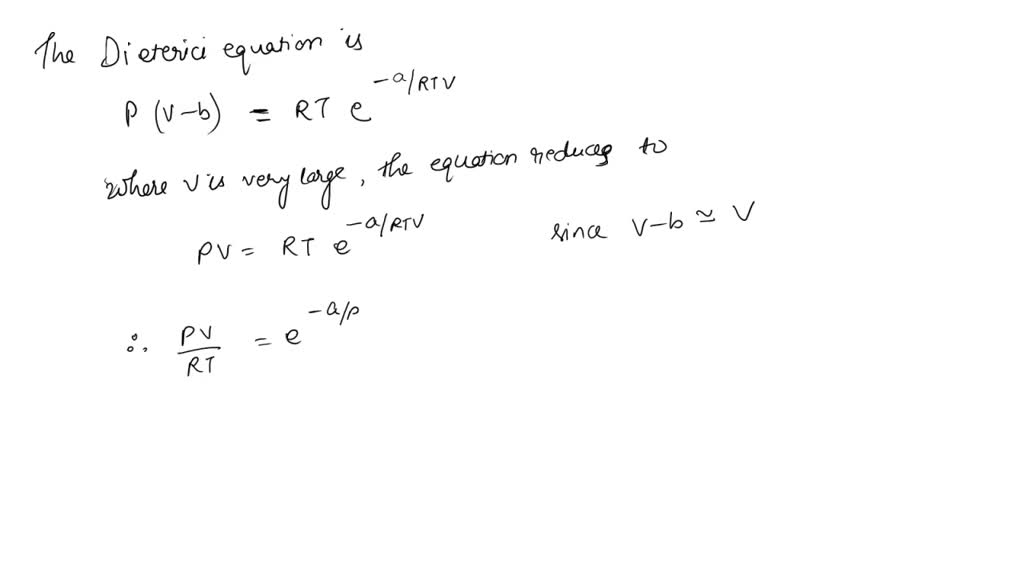 The Dieterici equation is
P (V-b) = RT e^{-a/RTV}
Where V is very large, the equation reduces to
PV = RT e^{-a/RTV} since V-b ≃ V
∴ PV/RT = e^{-a/p}